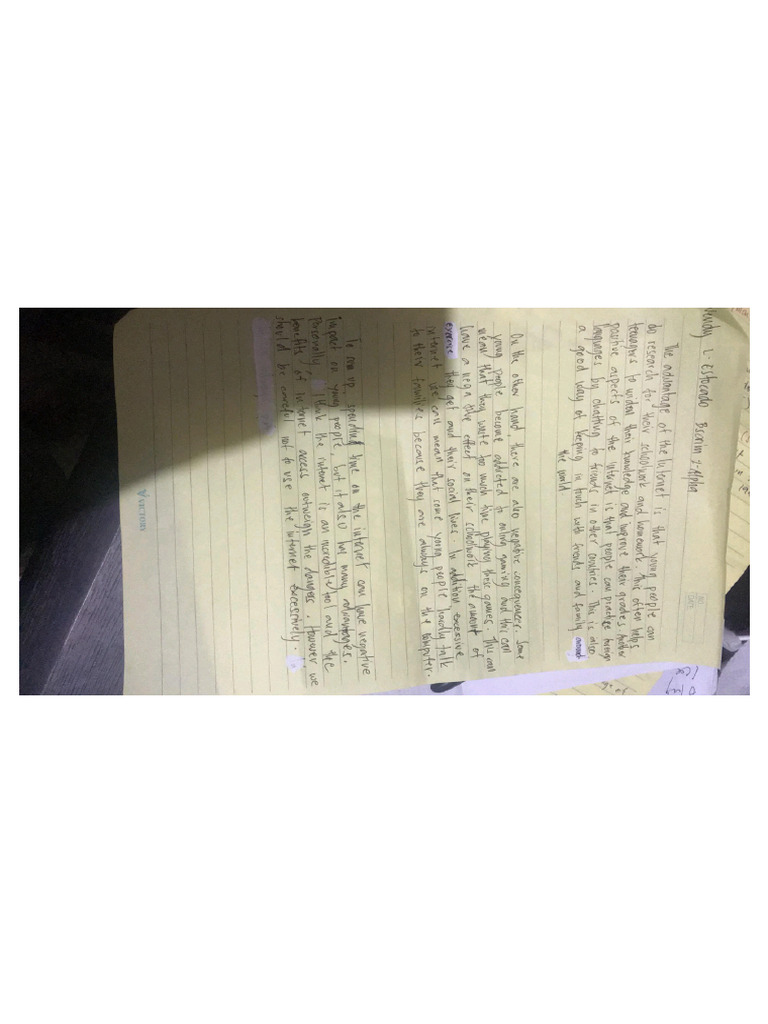 Wendy L. Estocado BSCrim 2-Alpha
The advantage of the Internet is that young people can
do research for their schoolwork and homework. This often helps
teenagers to widen their knowledge and improve their grades. Another
positive aspects of the Internet is that people can practice foreign
languages by chatting to friends in other countries. This is also
a good way of keeping in touch with friends and family around
the world
On the other hand, there are also negative consequences. Some
young people become addicted to online gaming and this can
mean that they waste too much time playing these games. This can
have a negative effect on their schoolwork the amount of
exercise they get and their social lives. In addition, excessive
internet use can mean that some young people hardly talk
to their families because they are always on the computer.
To sum up, spending time on the internet can have negative
impact on young people, but it also has many advantages.
Personally, I think the internet is an incredible tool and the
benefits of internet access outweigh the dangers. However we
should be careful not to use the internet excessively.
VICTORY